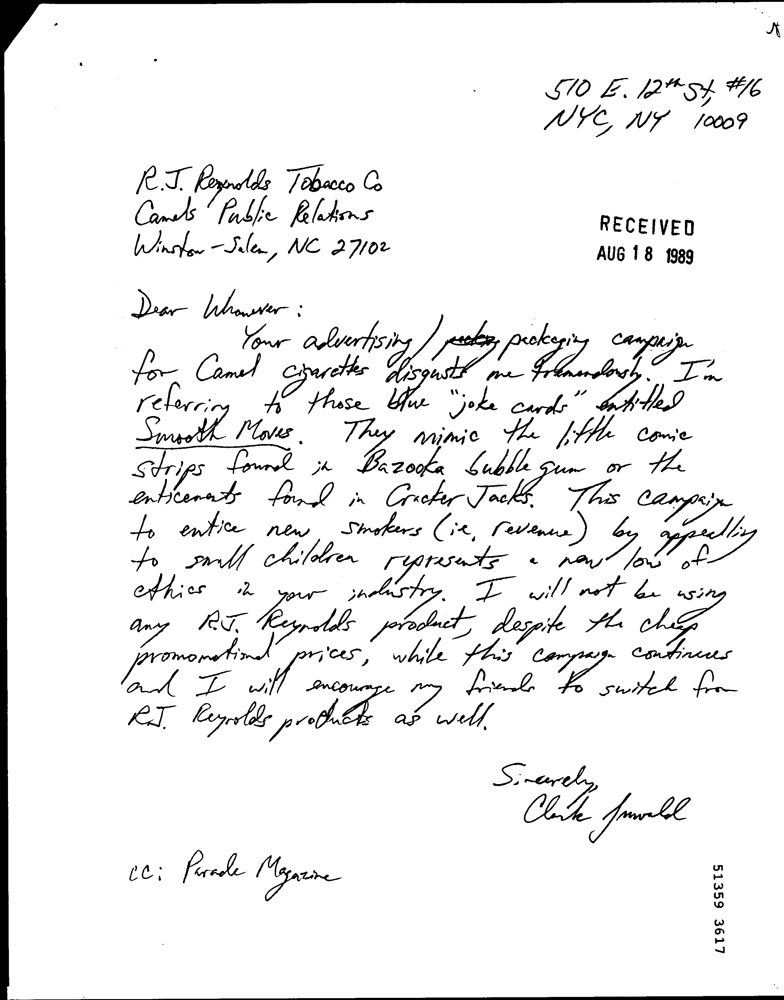 510 E. 12th St, #16
NYC, NY 10009
R.J. Reynolds Tobacco Co
Camels Public Relations
Winston-Salem, NC 27102
RECEIVED
AUG 18 1989
Dear Whomever:
Your advertising/ packaging campaign
for Camel cigarettes disgusts me tremendously. I'm
referring to those blue "joke cards" entitled
Smooth Moves. They mimic the little comic
strips found in Bazooka bubble gum or the
enticements found in Cracker Jacks. This campaign
to entice new smokers (ie, revenue) by appealling
to small children represents a new low of
ethics in your industry. I will not be using
any R.J. Reynolds product, despite the cheap
promomotional prices, while this campaign continues
and I will encourage my friends to switch from
R.J. Reynolds products as well.
Sincerely,
Clark
cc: Parade Magazine
51359 3617